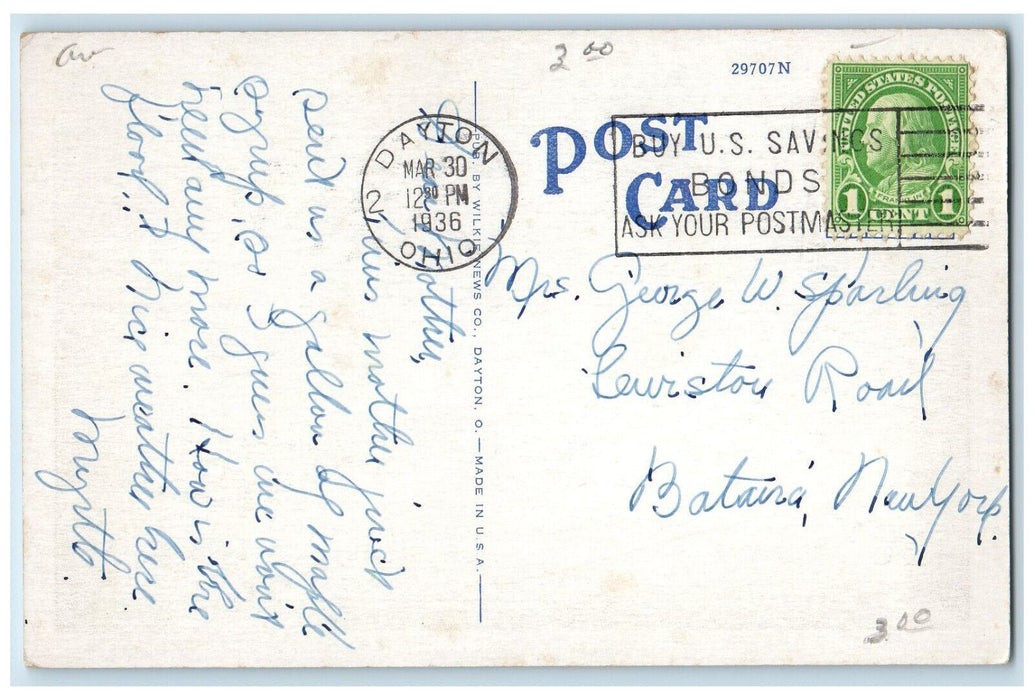 3.00
29707N
POST
CARD
DAYTON
MAR 30
12 30 PM
1936
OHIO
2
BUY U.S. SAVINGS
BONDS
ASK YOUR POSTMASTER
UNITED STATES POSTAGE
FRANKLIN
1 CENT 1
PUB. BY WILKIE NEWS CO., DAYTON, O. — MADE IN U.S.A.
Dear Mother,
mother just
sent us a gallon of maple
syrup, so I guess we won't
need any more. How is the
flood? Nice weather here
Myrtle.
Mrs. George W. Sparling
Lewiston Road
Batavia, New York
3.00